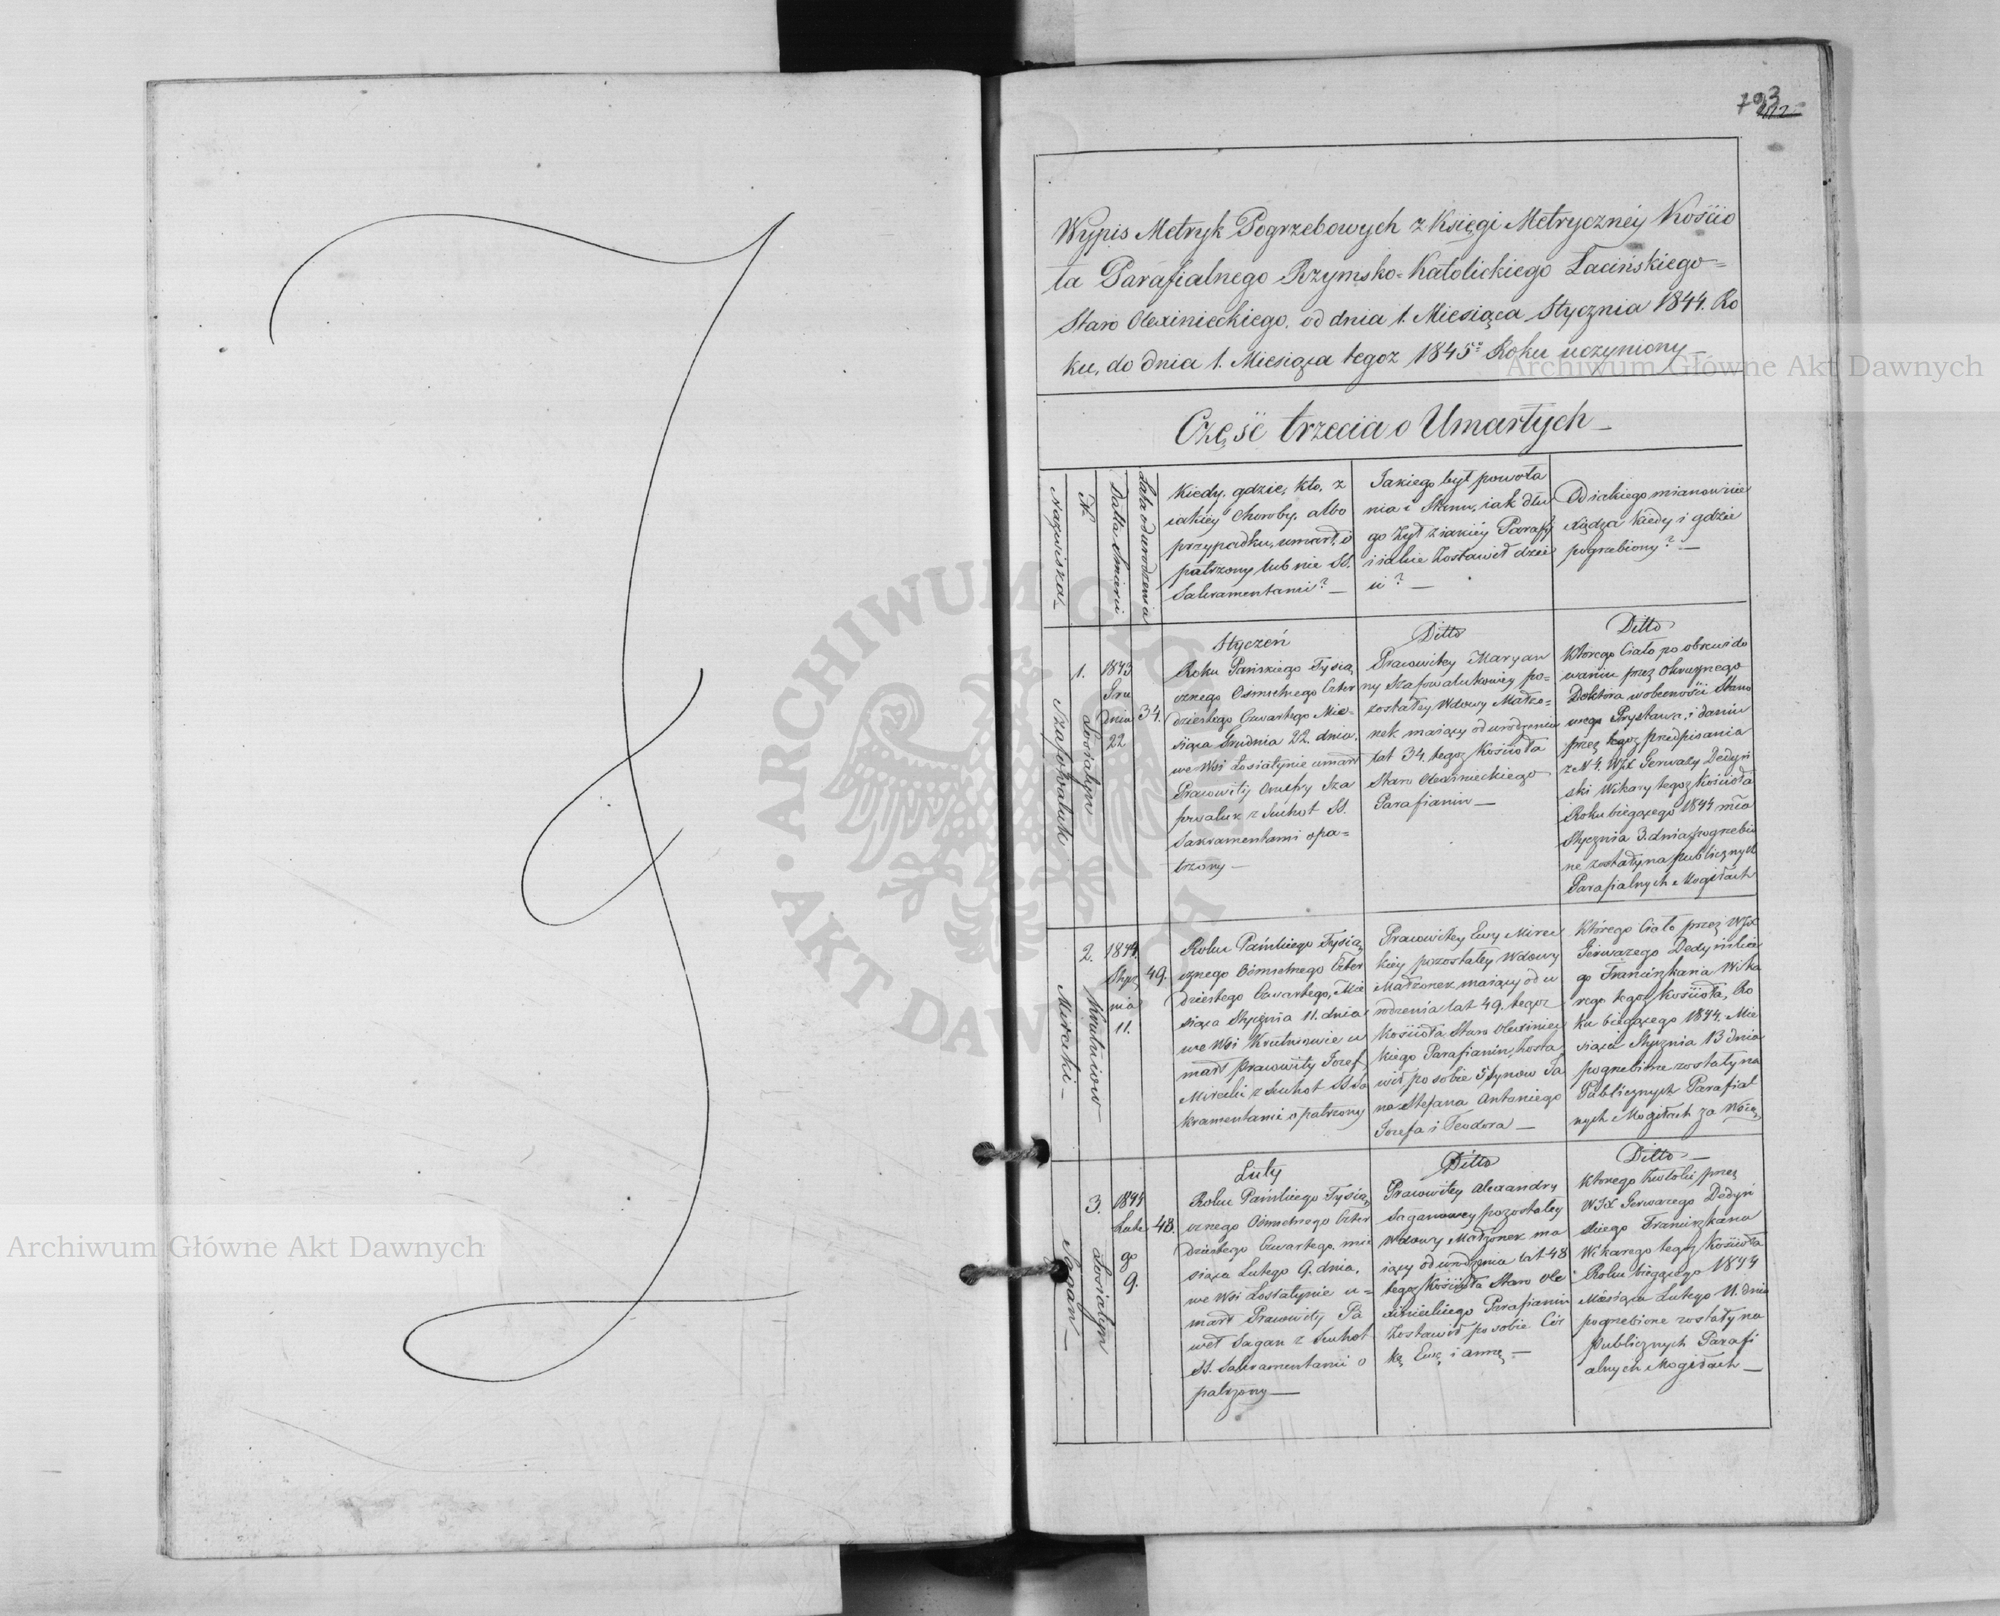 793
Wypis Metryk Pogrzebowych z Księgi Metryczney Kościo
ła Parafialnego Rzymsko-Katolickiego Łacińskiego
Staro Olexinieckiego, od dnia 1. Miesiąca Stycznia 1844. Ro
ku, do dnia 1. Miesiąca tegoz 1845º Roku uczyniony
Część trzecia o Umarłych
Nazwiska
N.
Datta Smierci
Lata od urodzenia
Kiedy, gdzie, kto, z
iakiey Choroby, albo
przypadku, umarł, o
patrzony lub nie SS.
Sakramentami?
Jakiego był powoła
nia i Stanu, iak dłu
go Żył z iakiey Parafy
i iakie Zostawił dzie
ci?
Od iakiego mianowicie
Xiędza Kiedy i gdzie
pogrzebiony?
Szafowaluk
1.
Łosiatyn
1843
Gru
dnia
22
34.
Styczeń
Roku Pańskiego Tysią
cznego Osmsetnego Czter
dziestego Czwartego Mie-
siąca Grudnia 22. dnia.
we Wsi Łosiatynie umarł
Pracowity Onufry Sza
fowaluk z Suchot SS.
Sakramentami opa=
trzony
Ditto
Pracowitey Maryan
ny Szafowalukowey po-
zostałey Wdowy Małżo-
nek maiący od urodzenia
lat 34. tegoz Kościoła
Staro Olexinieckiego
Parafianin
Ditto
Ktorego Ciało po obrewido
waniu przez Okrężnego
Doktora w obecności Stano
wego Prystawa, i daniu
przez tegoz predpisania
z N 4. WJX Gerwazy Dedyń
ski Wikary tegoz Kościoła
Roku biegącego 1844 mca
Stycznia 3. dnia, pogrzebio
ne zostały na publicznych
Parafialnych Mogiłach
Mirecki
2.
Krutniow
1844
Stycz
nia
11.
49.
Roku Pańskiego Tysią
cznego Osmsetnego Czter
dziestego Czwartego, Mie
siąca Stycznia 11. dnia
we Wsi Krutniowie u
marł Pracowity Jozef
Mirecki z Suchot SS Sa
kramentami opatrzony
Pracowitey Ewy Mirec
kiey pozostałey Wdowy
Małżonek maiący od u
rodzenia lat 49. tegoz
Kościoła Staro Olexiniec
kiego Parafianin, Zosta
wił po sobie 5 Synow Ja
na Stefana Antoniego
Jozefa i Teodora
Którego Ciało przez WJX
Gerwazego Dedyńskie
go Franciszkana Wika
rego tegoz Kościoła, Ro
ku biegącego 1844. Mie
siąca Stycznia 13 dnia
pogrzebione zostały na
Publicznych Parafial
nych Mogiłach za Wsią
Sagan
3.
Łosiatyn
1844
Lute
go
9.
48.
Luty
Roku Pańskiego Tysią
cznego Osmsetnego Czter
dziestego Czwartego, mie
siąca Lutego 9. dnia,
we Wsi Łosiatynie u=
marł Pracowity Pa
weł Sagan z Suchot
SS. Sakramentami o
patrzony
Ditto
Pracowitey Alexandry
Saganowey pozostałey
Wdowy Małżonek ma
iący od urodzenia lat 48
tegoz Kościoła Staro Ole
xinieckiego Parafianin
Zostawił po sobie Cór
kę Ewę i Annę
Ditto
Ktorego Zwłoki przez
WJX Gerwazego Dedyń
skiego Franciszkana
Wikarego tegoz Kościoła
Roku biegącego 1844
Miesiąca Lutego 11. dnia
pogrzebione zostały na
Publicznych Parafi
alnych Mogiłach
Archiwum Główne Akt Dawnych
Archiwum Główne Akt Dawnych
ARCHIWUM GŁÓWNE AKT DAWNYCH